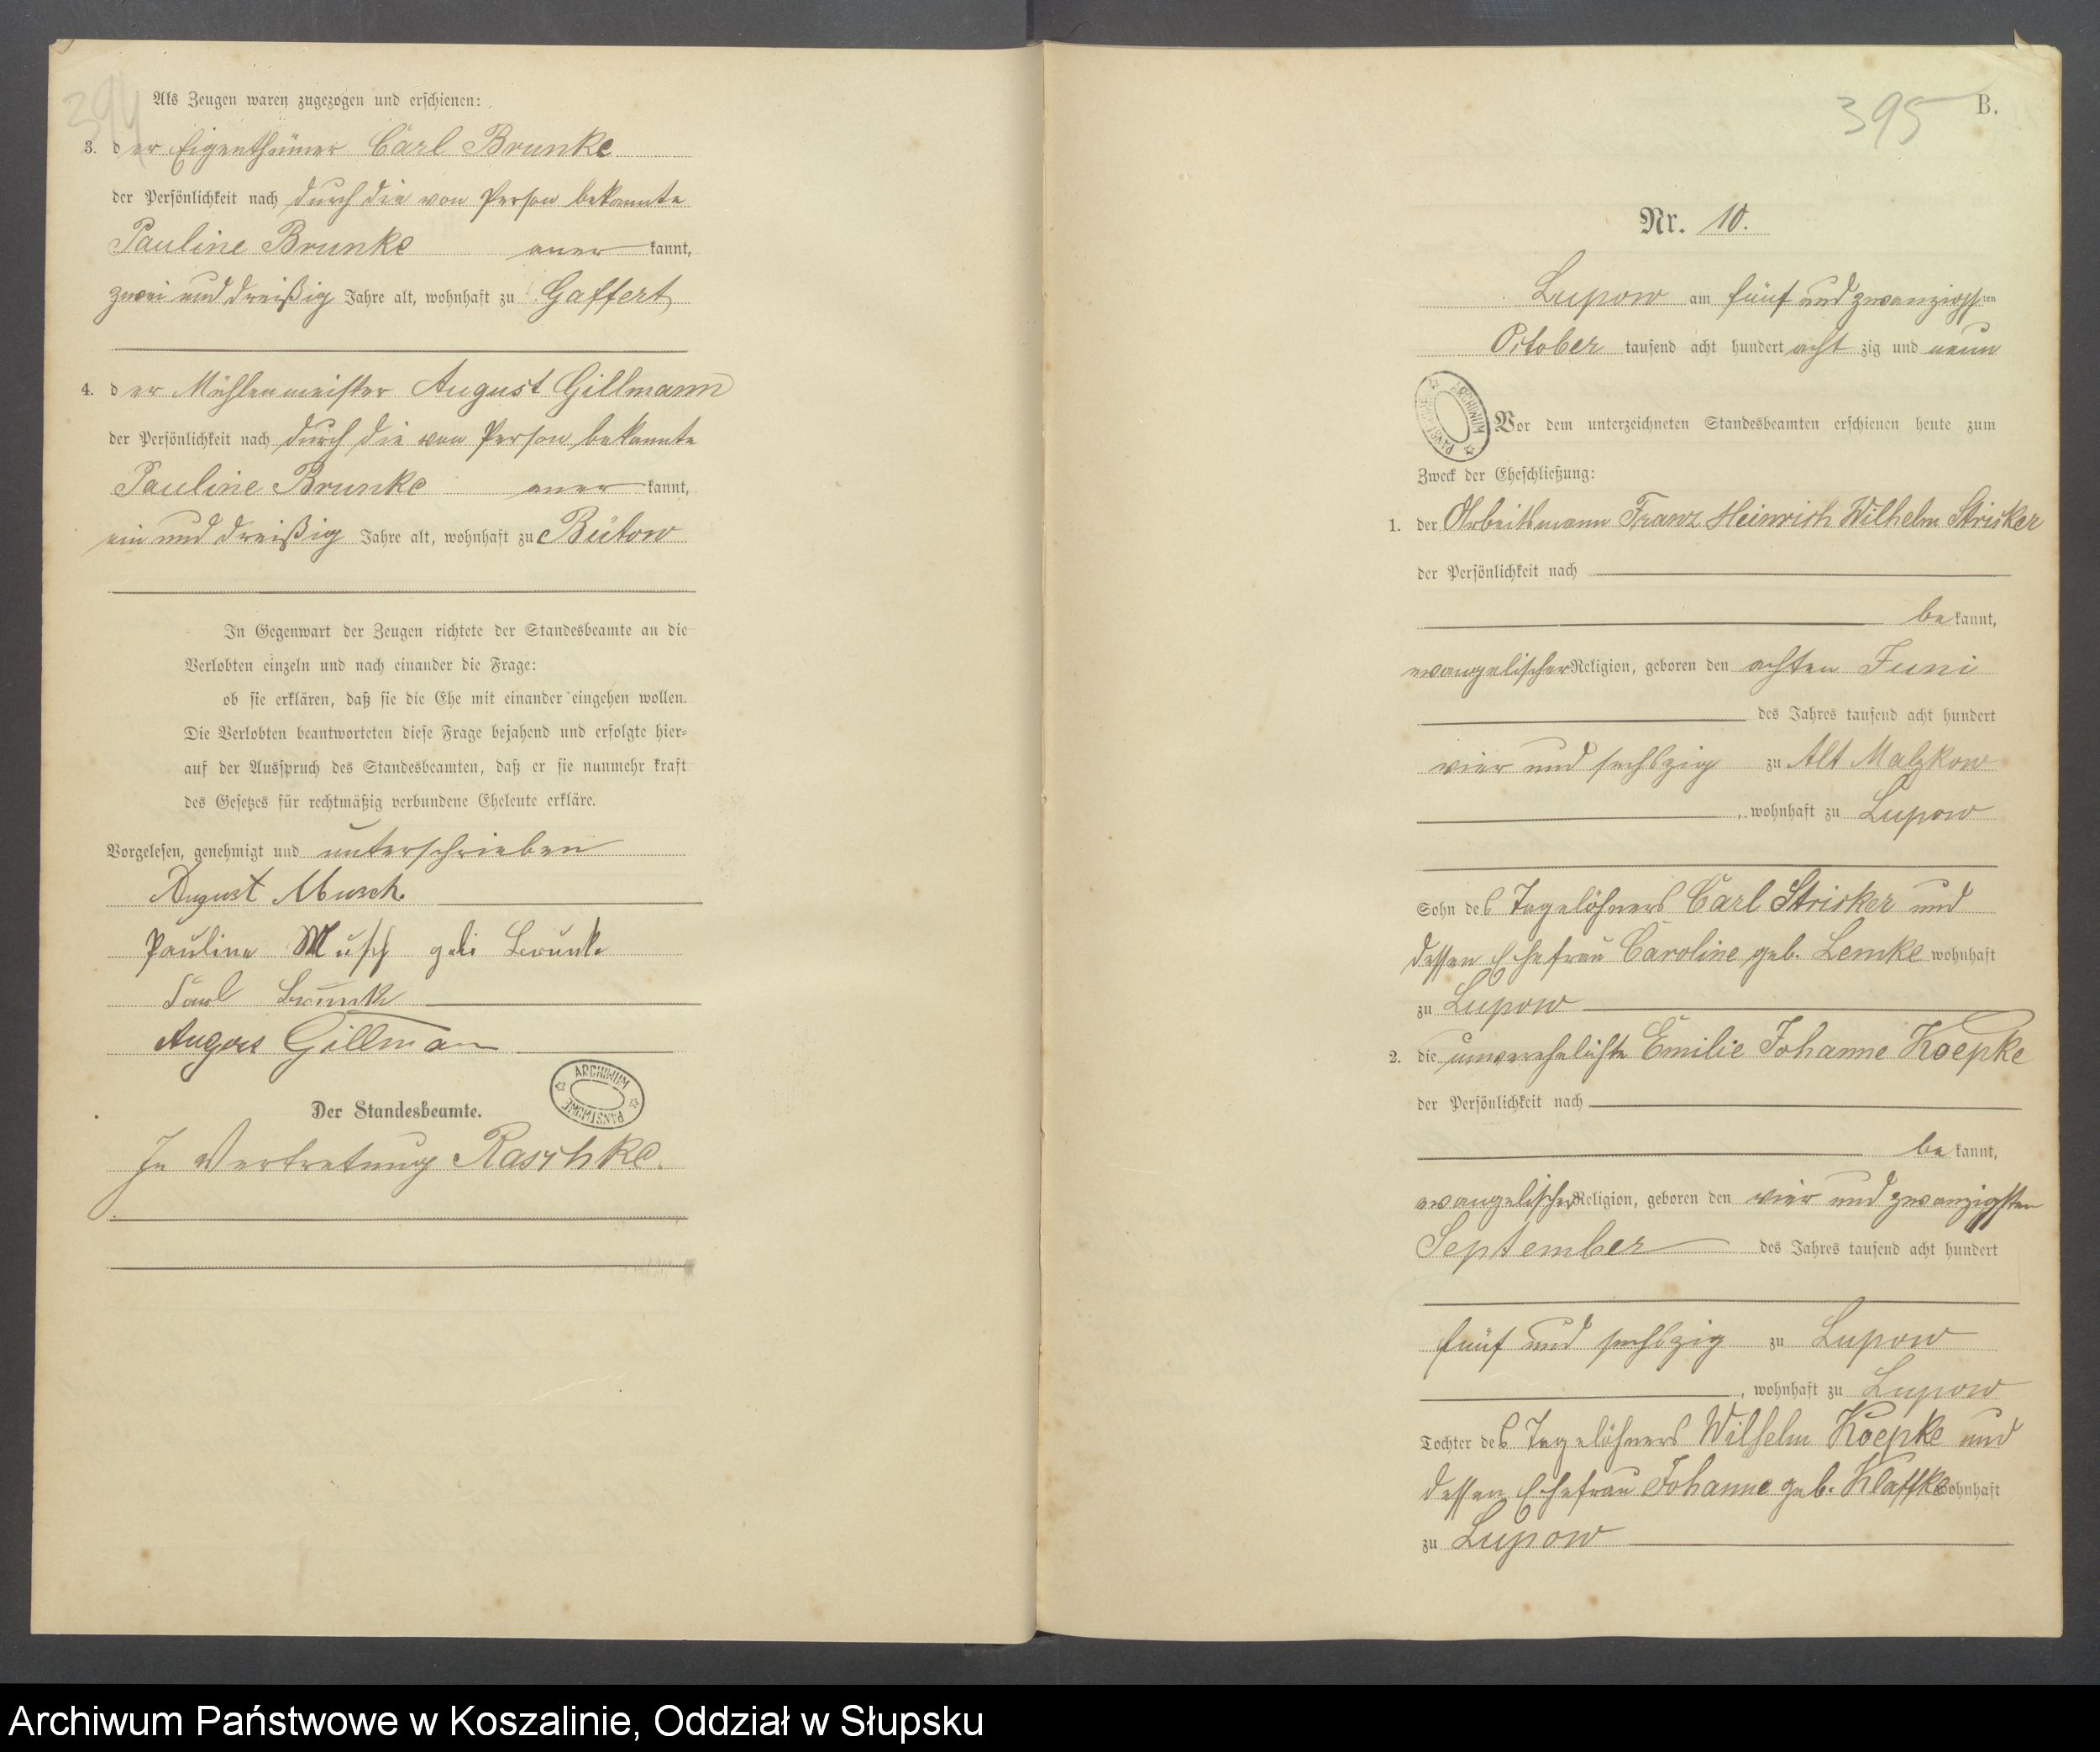 394
Als Zeugen waren zugezogen und erschienen:
3. der Eigenthümer Carl Brunke
der Persönlichkeit nach durch die von Person bekannte
Pauline Brunke aner kannt,
zwei und dreißig Jahre alt, wohnhaft zu Gaffert
4. der Mühlenmeister August Gillmann
der Persönlichkeit nach durch die von Person bekannte
Pauline Brunke aner kannt,
ein und dreißig Jahre alt, wohnhaft zu Bütow
In Gegenwart der Zeugen richtete der Standesbeamte an die
Verlobten einzeln und nach einander die Frage:
ob sie erklären, daß sie die Ehe mit einander eingehen wollen.
Die Verlobten beantworteten diese Frage bejahend und erfolgte hier-
auf der Ausspruch des Standesbeamten, daß er sie nunmehr kraft
des Gesetzes für rechtmäßig verbundene Eheleute erkläre.
Vorgelesen, genehmigt und unterschrieben
August Musch
Pauline Musch Brunke
Carl Brunke
August Gillman
Der Standesbeamte.
ARCHIWUM PAŃSTWOWE
In Vertretung Raschke.
395 B.
Nr. 10.
Lupow am fünf und zwanzigsten
October tausend acht hundert acht zig und neun
ARCHIWUM PAŃSTWOWE
Vor dem unterzeichneten Standesbeamten erschienen heute zum
Zweck der Eheschließung:
1. der Arbeitsmann Franz Heinrich Wilhelm Stricker
der Persönlichkeit nach
be kannt,
evangelischer Religion, geboren den achten Juni
des Jahres tausend acht hundert
vier und sechszig zu Alt Malzkow
, wohnhaft zu Lupow
Sohn des Tagelöhners Carl Stricker und
dessen Ehefrau Caroline geb. Lemke wohnhaft
zu Lupow
2. die unverehelichte Emilie Johanne Koepke
der Persönlichkeit nach
be kannt,
evangelischer Religion, geboren den vier und zwanzigsten
September des Jahres tausend acht hundert
fünf und sechszig zu Lupow
, wohnhaft zu Lupow
Tochter des Tagelöhners Wilhelm Koepke und
dessen Ehefrau Johanne geb. Klaffke wohnhaft
zu Lupow
Archiwum Państwowe w Koszalinie, Oddział w Słupsku